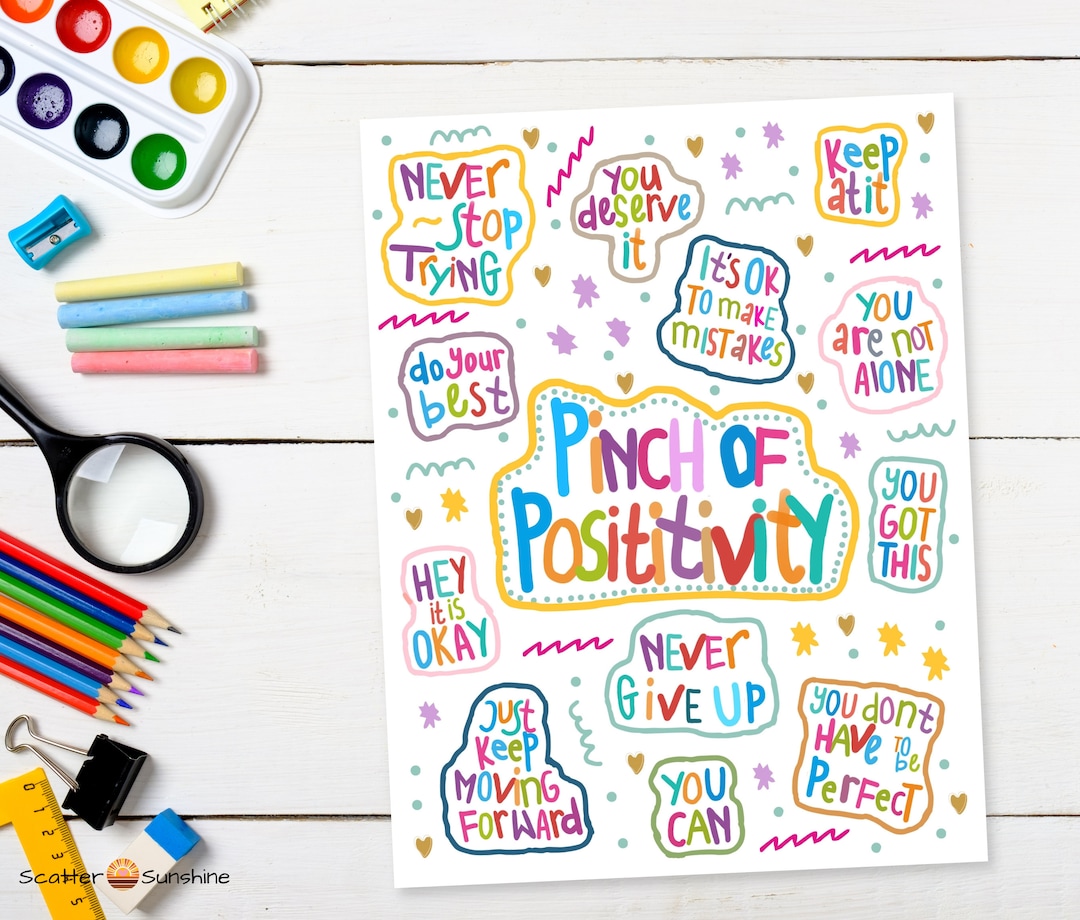 NEVEr
~ Stop
TryiNG
you
deserve
it
Keep
at it
It's OK
To maKE
mistaKes
YOU
are not
AlONE
do your
best
PiNCH OF
PosititivitY
YOU
GOT
THIS
HEY
it is
OKAY
NEVEr
GiVE UP
Just
KeeP
MOViNG
ForWArd
YOU
CAN
YOU dont
HAVe TO
be
PerFecT
0
1
2
3
5
Scatter Sunshine